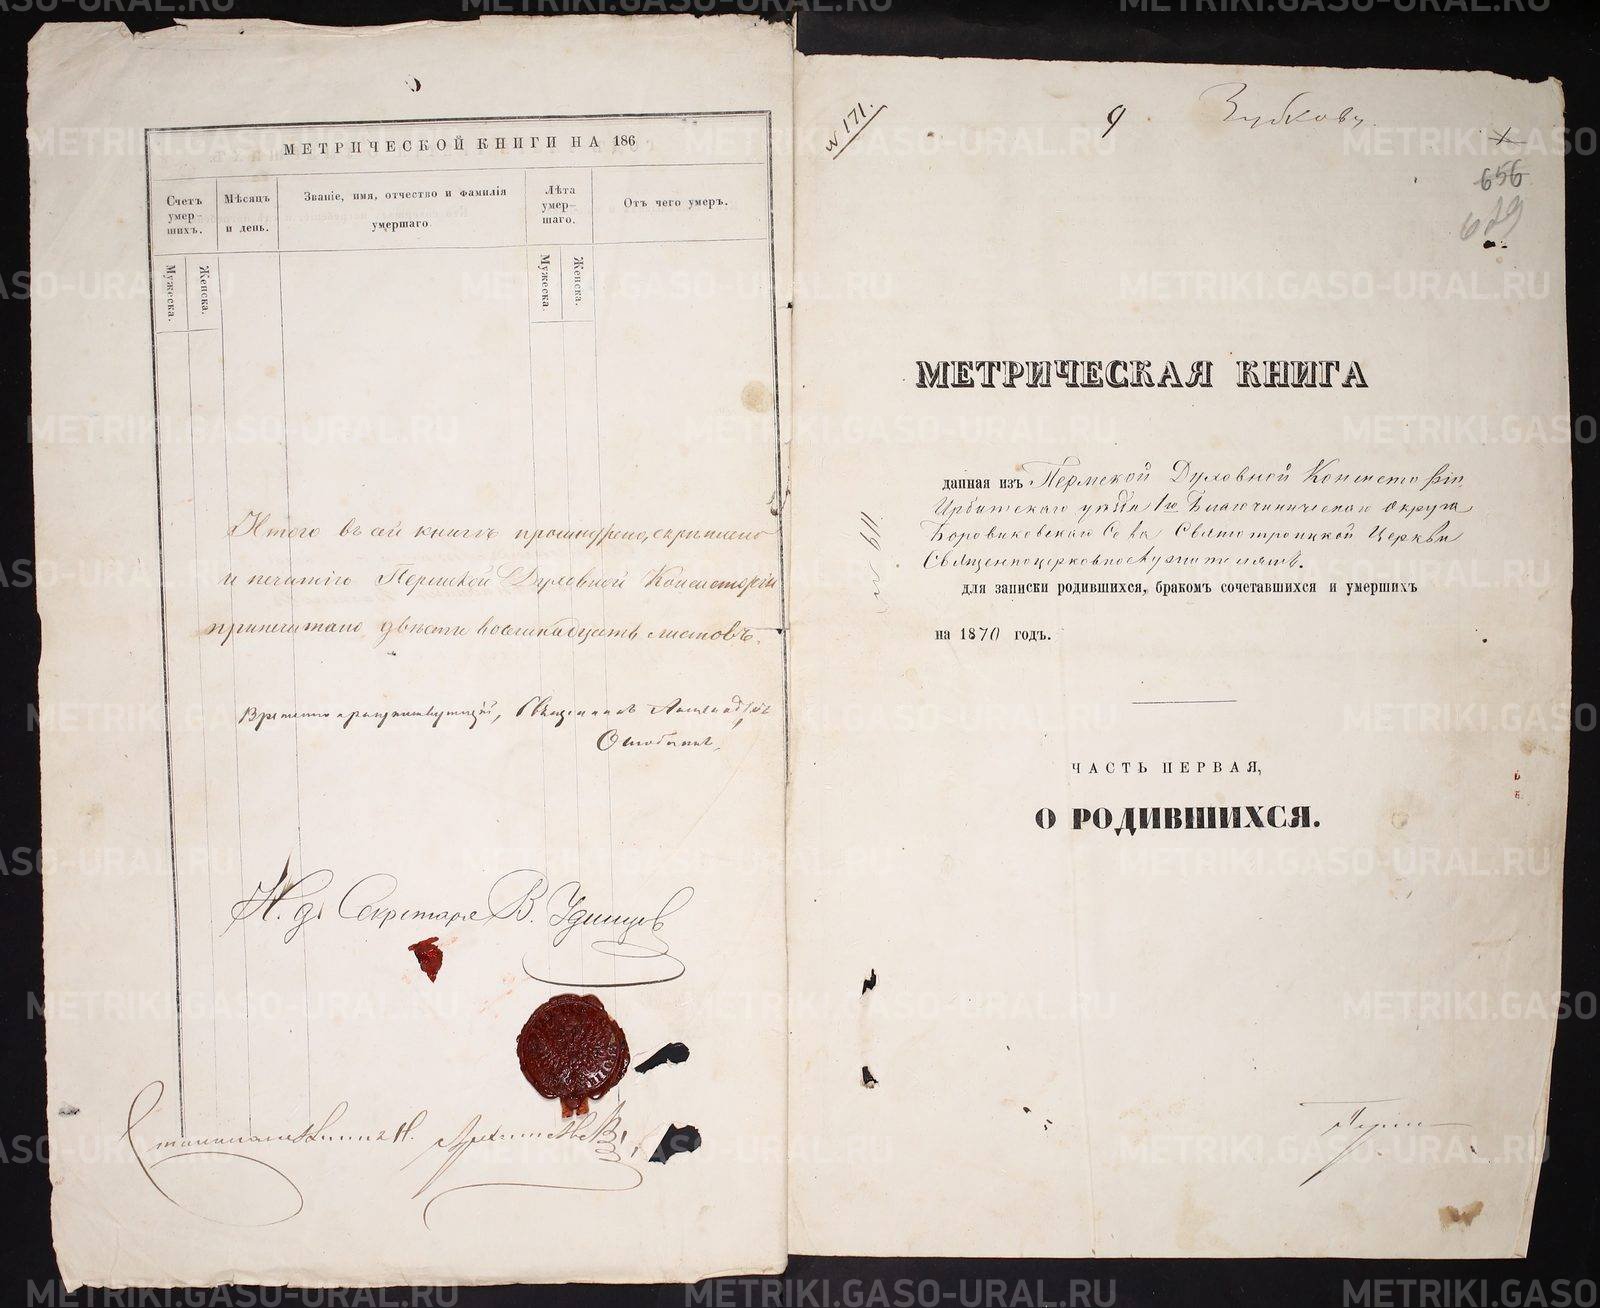 МЕТРИЧЕСКОЙ КНИГИ НА 186
Счетъ умер-шихъ.
Мѣсяцъ и день.
Званіе, имя, отчество и фамилія умершаго
Лѣта умер-шаго.
Отъ чего умеръ.
Мужеска.
Женска.
Мужеска.
Женска.
Итого въ сей книгѣ прошнурено, скрѣплено
и печатію Пермской Духовной Консисторіи
припечатано двѣсти восемнадцать листовъ.
Священникъ Александръ
И. д. Секретаря В. Удинцев
№ 171.
9
Зубкову
656
619
МЕТРИЧЕСКАЯ КНИГА
данная изъ Пермской Духовной Консисторіи
Ирбитскаго уѣзда 1го Благочинническаго округа
Боровиковскаго Села Святотроицкой Церкви
Священноцерковнослужителямъ.
для записки родившихся, бракомъ сочетавшихся и умершихъ
на 1870 годъ.
ЧАСТЬ ПЕРВАЯ,
О РОДИВШИХСЯ.
METRIKI.GASO-URAL.RU